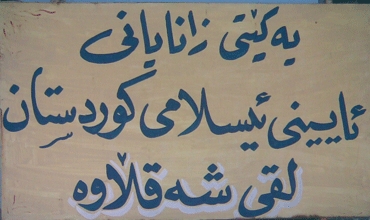 یەکێتی زانایانی
ئایینی ئیسلامی کوردستان
لقی شەقڵاوە